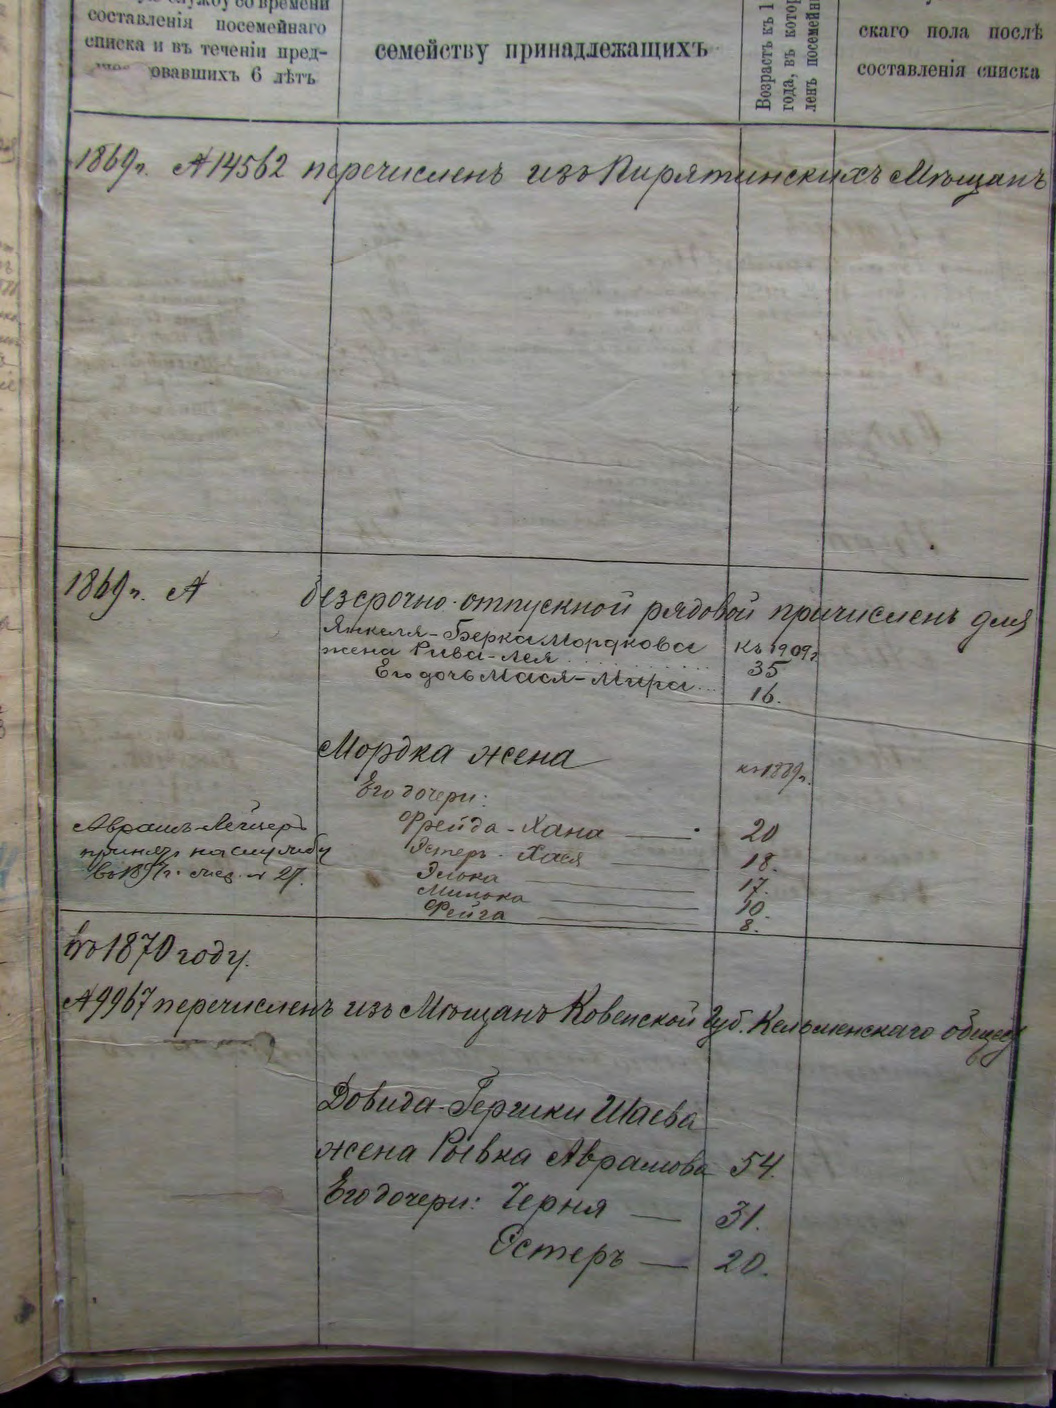 службу со времени
составленія посемейнаго
списка и въ теченіи пред-
овавшихъ 6 лѣтъ
семейству принадлежащихъ
Возрастъ къ 1
года, въ котор
ленъ посемейн
скаго пола послѣ
составленія списка
1869 г. № 14562 перечисленъ изъ Пирятинскихъ Мѣщанъ
1869 г. № безсрочно-отпускной рядовой причисленъ для
Янкеля-Берка Мордкова къ 1909 г
жена Рива-Лея 35
Его дочь Мася-Мира 16.
Мордка жена къ 1869 г.
Его дочери:
Фрейда-Хана 20
Эстеръ-Хася 18.
Элька 17.
Милька 10.
Фейга 8.
Авраамъ-Лейзеръ
принятъ на службу
въ г. № 27.
въ 1870 году.
№ 9967 перечисленъ изъ Мѣщанъ Ковенской Губ. Кельменскаго общес
Довида-Гершки Шаева
жена Рывка Аврамова 54.
Его дочери: Черня — 31.
Эстеръ — 20.